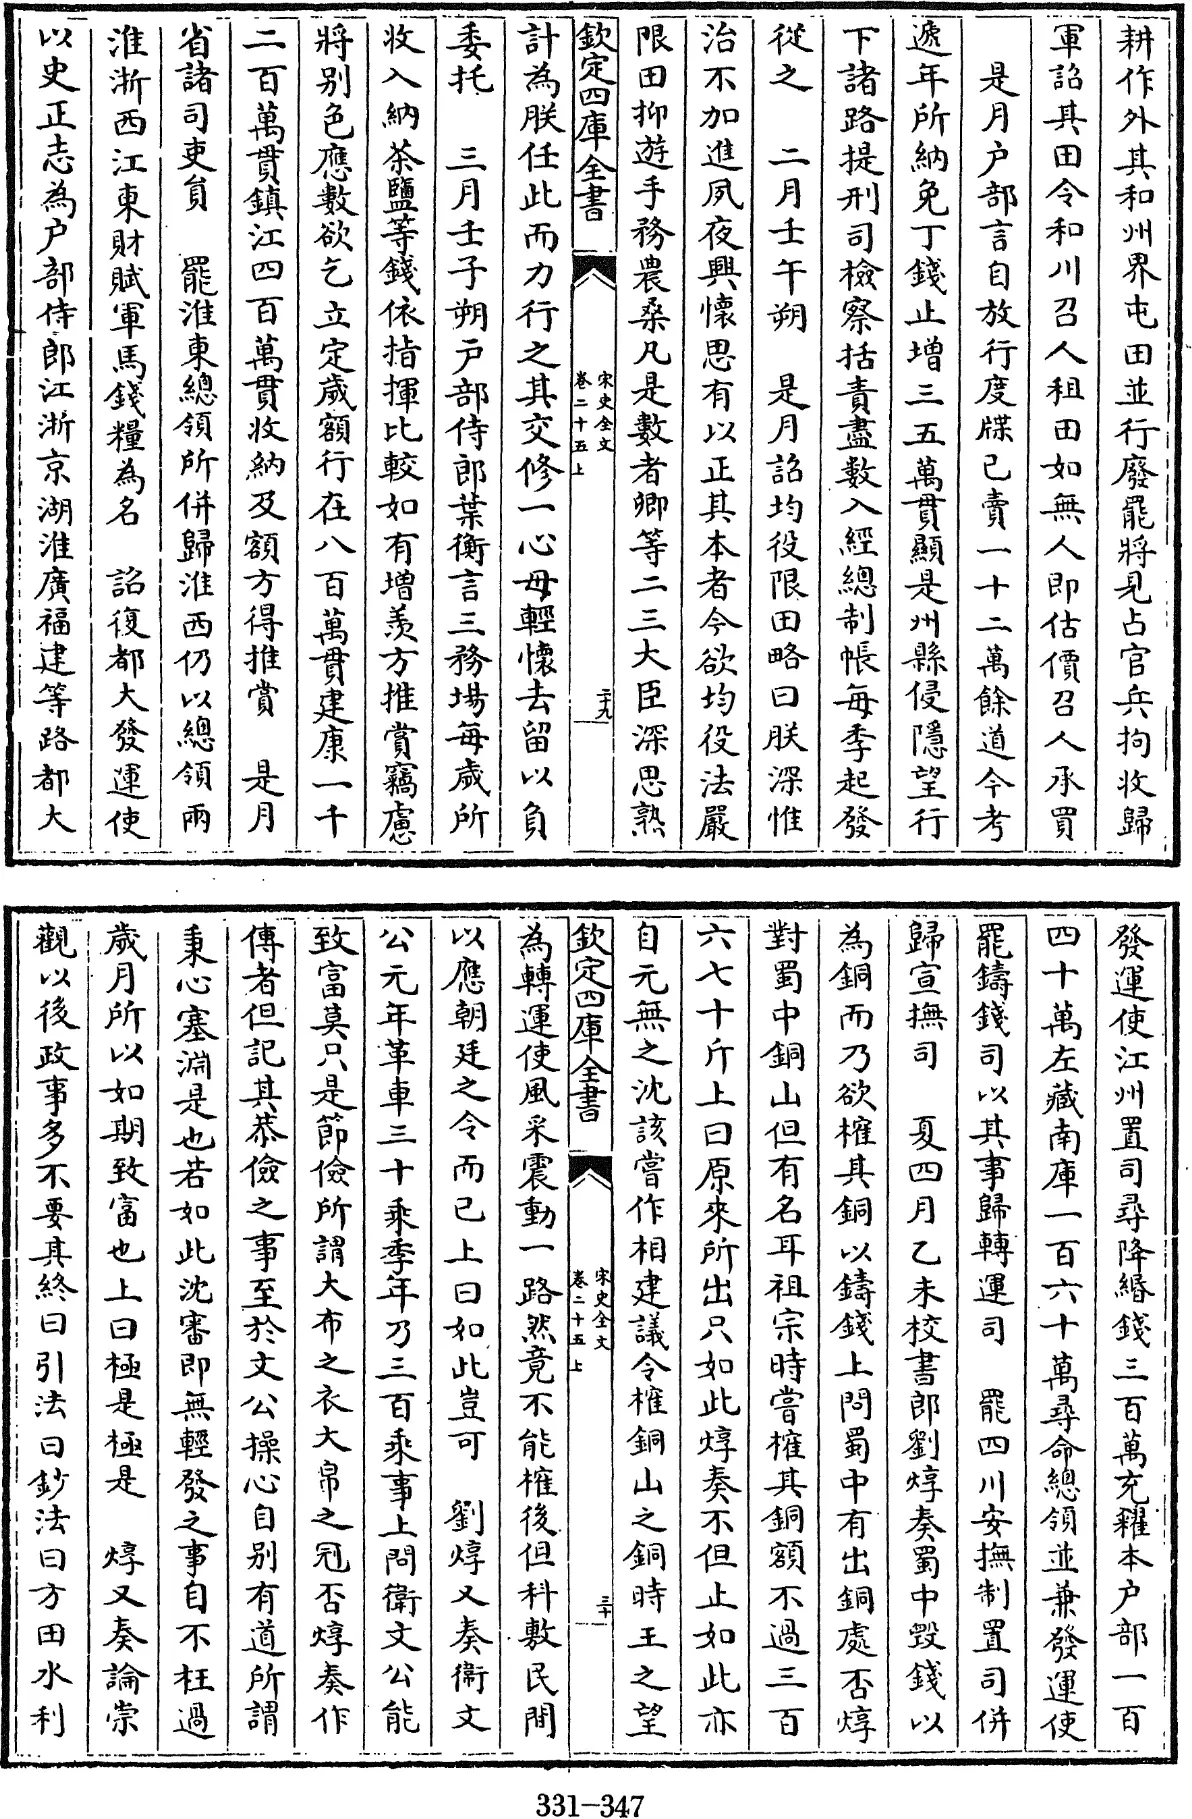 耕作外其和州界屯田並行廢罷將見占官兵拘收歸
軍詔其田令和川召人租田如無人即估價召人承買
是月户部言自放行度牒已賣一十二萬餘道今考
遞年所納免丁錢止增三五萬貫顯是州縣侵隱望行
下諸路提刑司檢察括責盡數入經總制帳每季起發
從之　二月壬午朔　是月詔均役限田略曰朕深惟
治不加進夙夜興懷思有以正其本者今欲均役法嚴
限田抑遊手務農桑凡是數者卿等二三大臣深思熟
欽定四庫全書
宋史全文
卷二十五上
二十九
計為朕任此而力行之其交修一心毋輕懷去留以負
委托　三月壬子朔户部侍郎葉衡言三務場每歲所
收入納茶鹽等錢依指揮比較如有增羨方推賞竊慮
將别色應數欲乞立定歲額行在八百萬貫建康一千
二百萬貫鎮江四百萬貫收納及額方得推賞　是月
省諸司吏員　罷淮東總領所併歸淮西仍以總領兩
淮浙西江東財賦軍馬錢糧為名　詔復都大發運使
以史正志為户部侍郎江浙京湖淮廣福建等路都大
發運使江州置司尋降緡錢三百萬充糴本户部一百
四十萬左藏南庫一百六十萬尋命總領並兼發運使
罷鑄錢司以其事歸轉運司　罷四川安撫制置司併
歸宣撫司　夏四月乙未校書郎劉焞奏蜀中毀錢以
為銅而乃欲榷其銅以鑄錢上問蜀中有出銅處否焞
對蜀中銅山但有名耳祖宗時嘗榷其銅額不過三百
六七十斤上曰原來所出只如此焞奏不但止如此亦
自元無之沈該嘗作相建議令榷銅山之銅時王之望
欽定四庫全書
宋史全文
卷二十五上
三十
為轉運使風采震動一路然竟不能榷後但科敷民間
以應朝廷之令而已上曰如此豈可　劉焞又奏衛文
公元年革車三十乘季年乃三百乘事上問衛文公能
致富莫只是節儉所謂大布之衣大帛之冠否焞奏作
傳者但記其恭儉之事至於文公操心自别有道所謂
秉心塞淵是也若如此沈審即無輕發之事自不枉過
歲月所以如期致富也上曰極是極是　焞又奏論崇
觀以後政事多不要其終曰引法曰鈔法曰方田水利
331-347